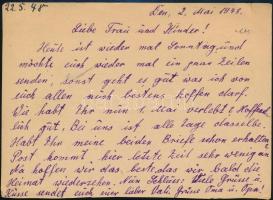 22.5.48
Den, 2. Mai 1948.
Liebe Frau und Kinder!
Heute ist wieder mal Sonntag, und
möchte euch wieder mal ein paar Zeilen
senden, sonst geht es gut was ich von
euch allen auch bestens hoffen darf.
Wie habt Ihr den 1. Mai verlebt? Hoffent
lich gut. Bei uns ist alle Tage dasselbe.
Habt Ihr meine beiden Briefe schon erhalten
Post kommt hier letzte Zeit sehr wenig an
da hoffen wir das beste, das wir bald die
Heimat wiedersehen. Nun Schluss! Viele Grüsse u.
Küsse sendet euch euer lieber Vati. Grüsse Oma u. Opa!